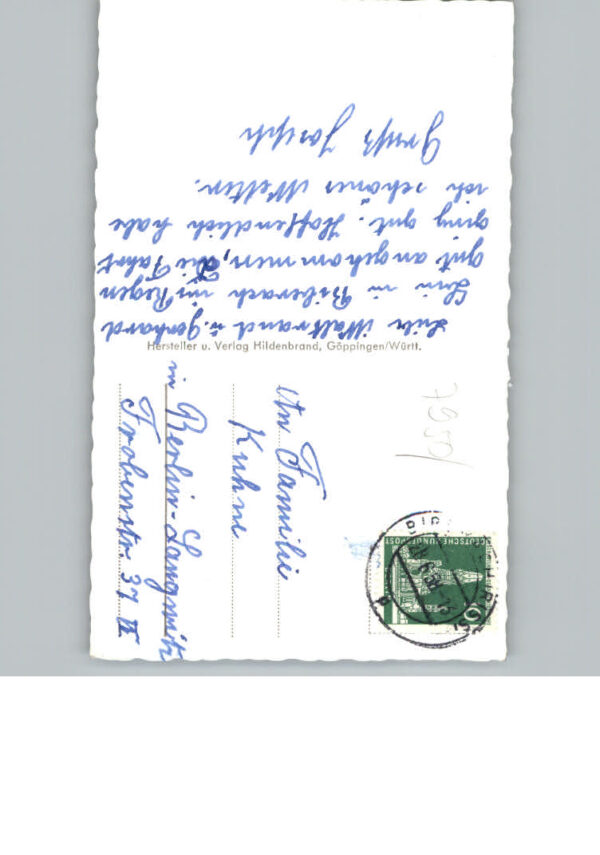 Liebe Waltraud u. Gerhard
Bin in Biberach im Regen
gut angekommen, die Fahrt
ging gut. Hoffendlich habe
ich schönes Wetter.
Gruß Joseph
Hersteller u. Verlag Hildenbrand, Göppingen/Württ.
An Familie
Kuhne
in Berlin-Lankwitz
Frobenstr. 37 II
7950
DEUTSCHE BUNDESPOST